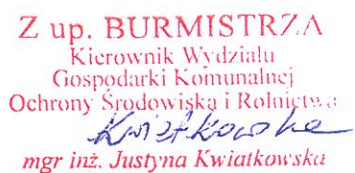 Z up. BURMISTRZA
Kierownik Wydziału
Gospodarki Komunalnej
Ochrony Środowiska i Rolnictwa
Kwiatkowska
mgr inż. Justyna Kwiatkowska